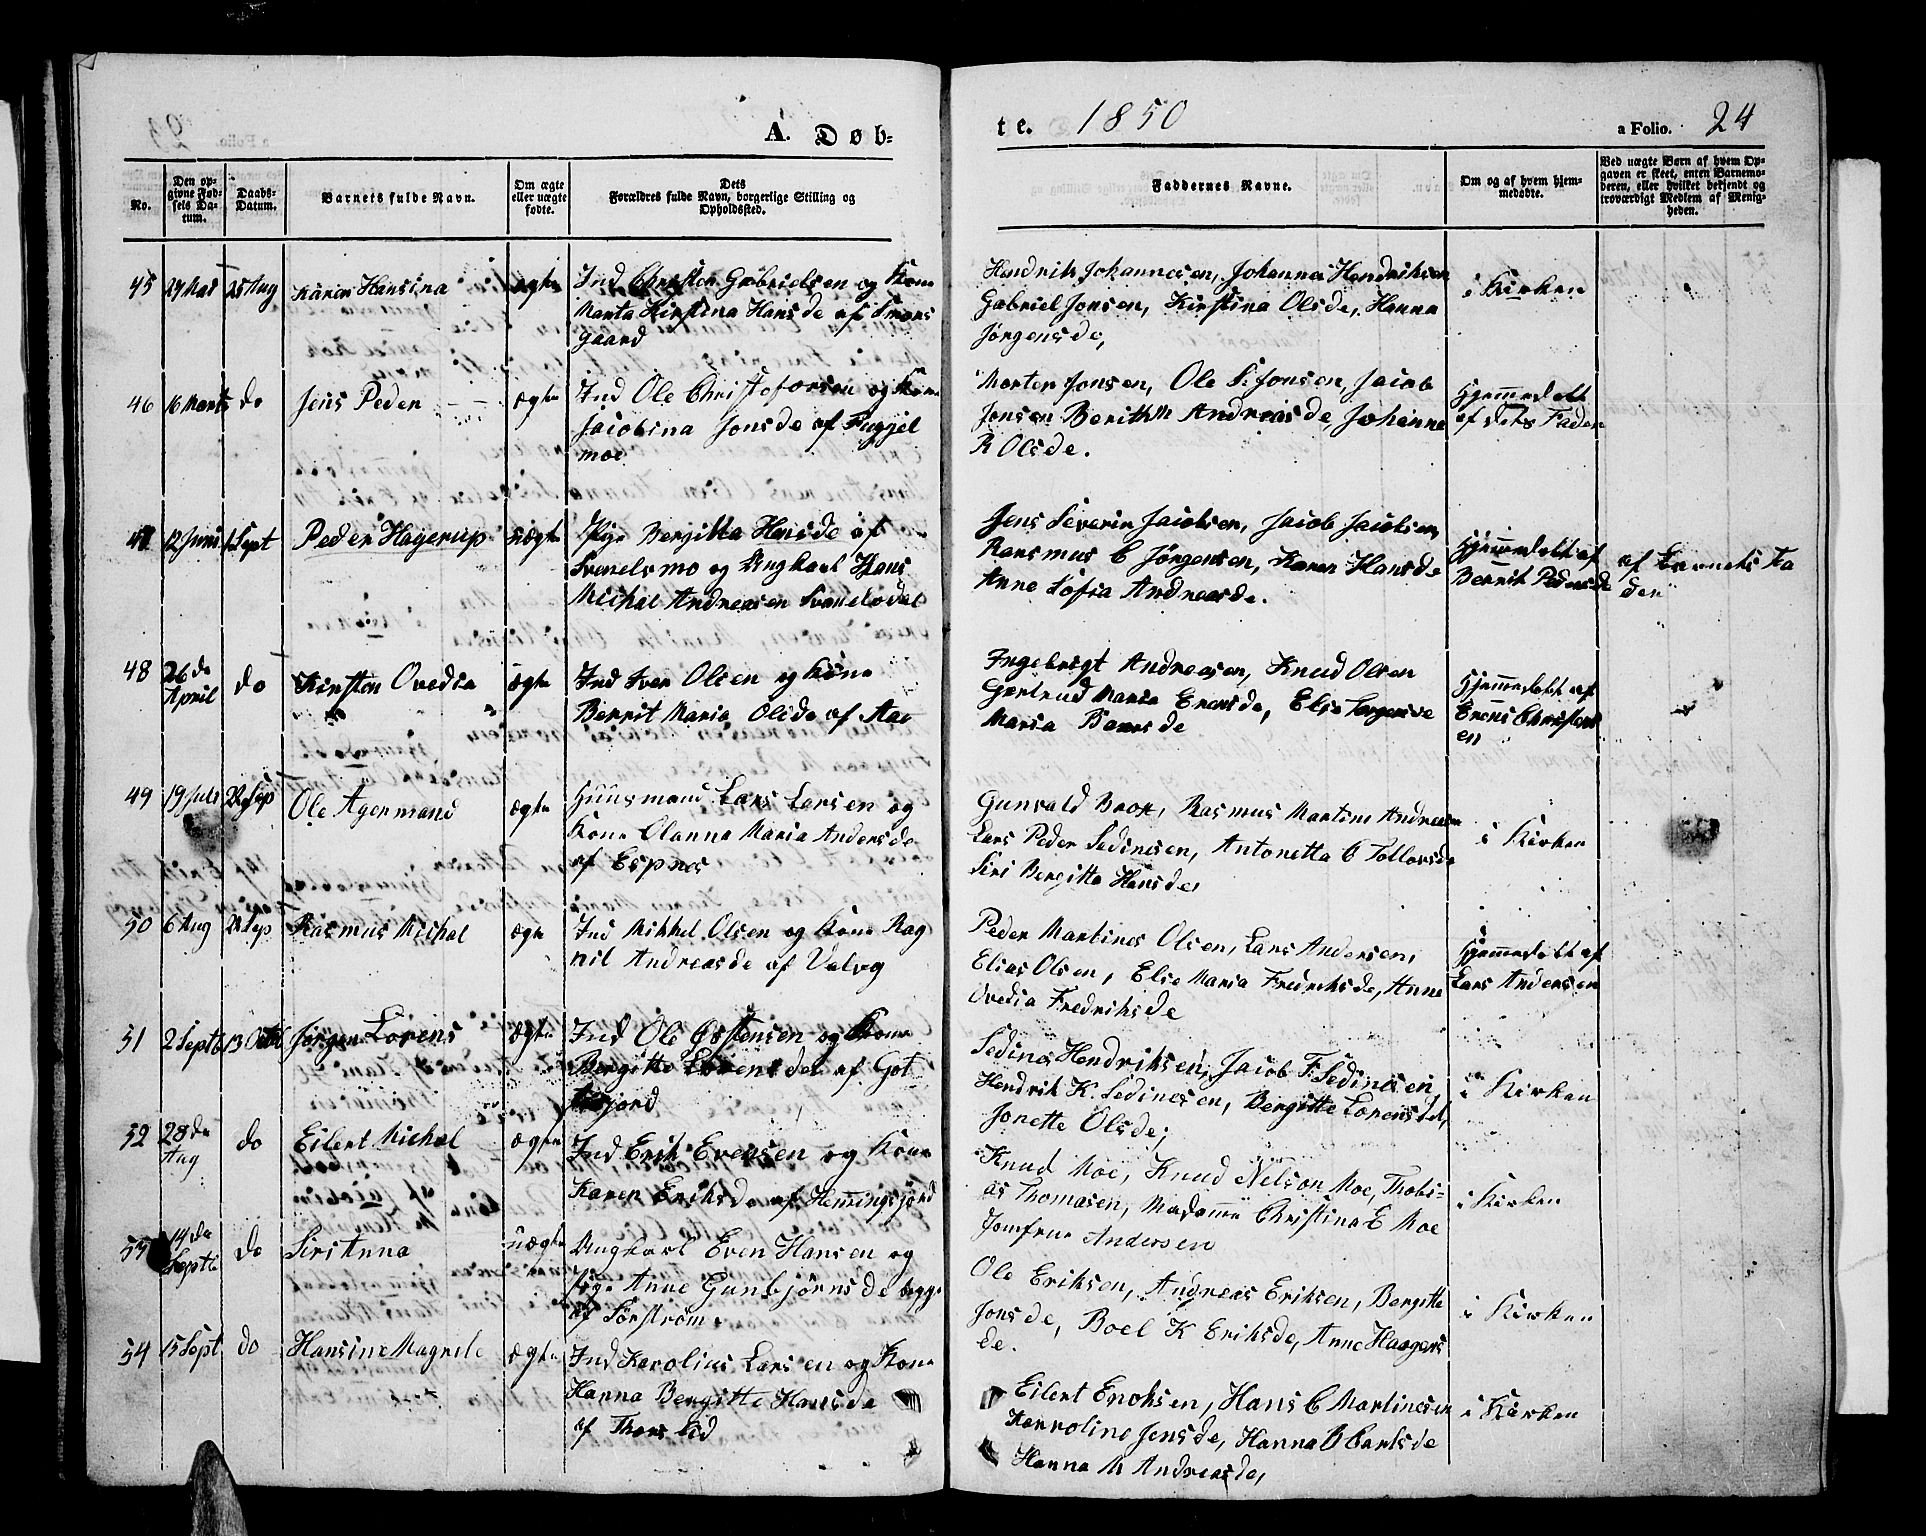 A. Døb-
te. 1850
a Folio. 24
No.
Den op-
givne Fød-
sels Da-
tum.
Daabs-
Datum.
Barnets fulde Navn.
Om ægte
eller uægte
fødte.
Dets
Forældres fulde Navn, borgerlige Stilling og
Opholdssted.
Faddernes Navne.
Om og af hvem hjem-
medøbte.
Ved uægte Børn af hvem Op-
gaven er skeet, enten Barnemo-
deren, eller hvilket bekjendt og
troværdigt Medlem af Menig-
heden.
45 29 Mai 25 Aug Karen Hansina ægte Ind Christen Gabrielsen og Kone
Marta Kirstina Hansde af
gaard
Hendrik Johannesen, Johannes Hendriksen
Gabriel Jonsen, Kirstina Olsde, Hanna
Jørgensde,
i Kirken
46 16 Marts do Jens Peder ægte Ind Ole Christofersen og Kone
Jacobina Jonsde af
moe
Morten Jonsen, Ole S. Jonsen, Jacob
Jonsen Berith M Andreasde, Johanna
R Olsde.
Hjemmedøbt
af dets Fader
47 12 Juni 1 Sept Peder Hagerup uægte Pige Bergitta Hansde af
Svendsmo og Ungkarl Hans
Michal Andreasen
Jens Severin Jacobsen, Jacob Jacobsen,
Rasmus C Jørgensen, Karen Hansde
Anne Sofia Andreasde.
Hjemmedøbt af
Berrit Pedersde
af Barnets Fa
der
48 26 de
April do Kirsten Ovedia ægte Ind Iver Olsen og Kone
Berrit Maria Olsde af Aae
Ingebrigt Andreasen, Knud Olsen
Gærtrud Maria Erensde, Else
Maria
Hjemmedøbt af
Erens Christens
en
49 19 Juli 22 Sep Ole Agermand ægte Huusmand Lars Larsen og
Kone Olanna Maria Andersde
af Espnes
Gunvald Brox, Rasmus Martin Andreasen
Lars Peder Sedinesen, Antonetta C Tollevsde
Siri Bergitta Hansde,
i Kirken
50 6 Aug 22 Sep Rasmus Michal ægte Ind Mikkel Olsen og Kone Rag
nil Andreasde af Valvog
Peder Martines Olsen, Lars Andersen,
Elias Olsen, Else Maria Fredriksde, Anne
Ovedia Fredriksde
Hjemmedøbt af
Lars Andersen
51 2 Septb 13 Octb Jørgen Lorens ægte Ind Ole Estensen og Kone
Bergitte Lorensdet af Got
fesjord
Sedines Hendriksen, Jacob F. Sedinesen,
Hendrik K. Sedinesen, Bergitte Lorensdet,
Jonette Olsde;
i Kirken
52 28 de
Aug do Eilert Michal ægte Ind Erik Evensen og Kone
Karen Eriksde af Hemmingsjord
Knud Moe, Knud Nelson Moe, Thobi-
as Thomasen, Madamme Christina E Moe
Jomfrue Andersen
i Kirken
53 14 de
Septb do Siri Anna uægte Ungkarl Even Hansen og
Pige Anne Gunbjørnsde begge
af Sørstrøm.
Ole Eriksen, Andreas Eriksen, Bergitte
Jonsde, Boel K Eriksde, Anne Haagens
de.
i Kirken
54 15 Sept do Hansine Magrete ægte Ind Karolius Larsen og Kone
Hanna Bergitte Hansde
af
Eilert Enoksen, Hans C Martinesen
Karroline Jensde, Hanna B Carlsde
Hanna M Andreasde,
i Kirken